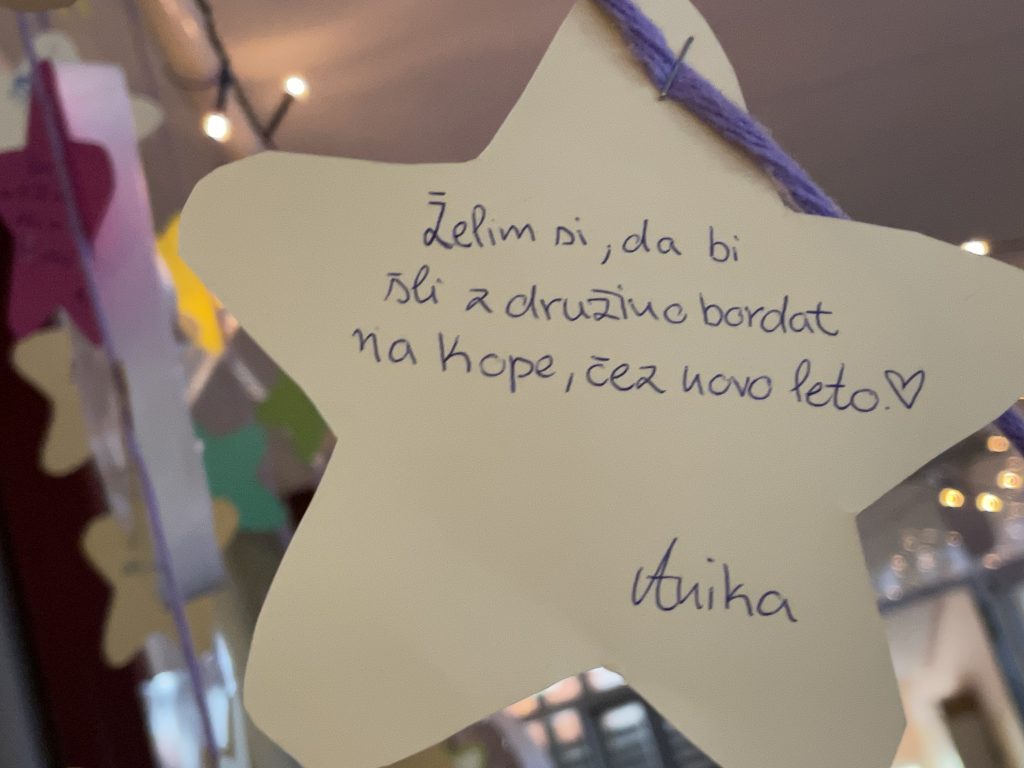 Želim si, da bi
šli z družino bordat
na Kope, čez novo leto.♡
Anika